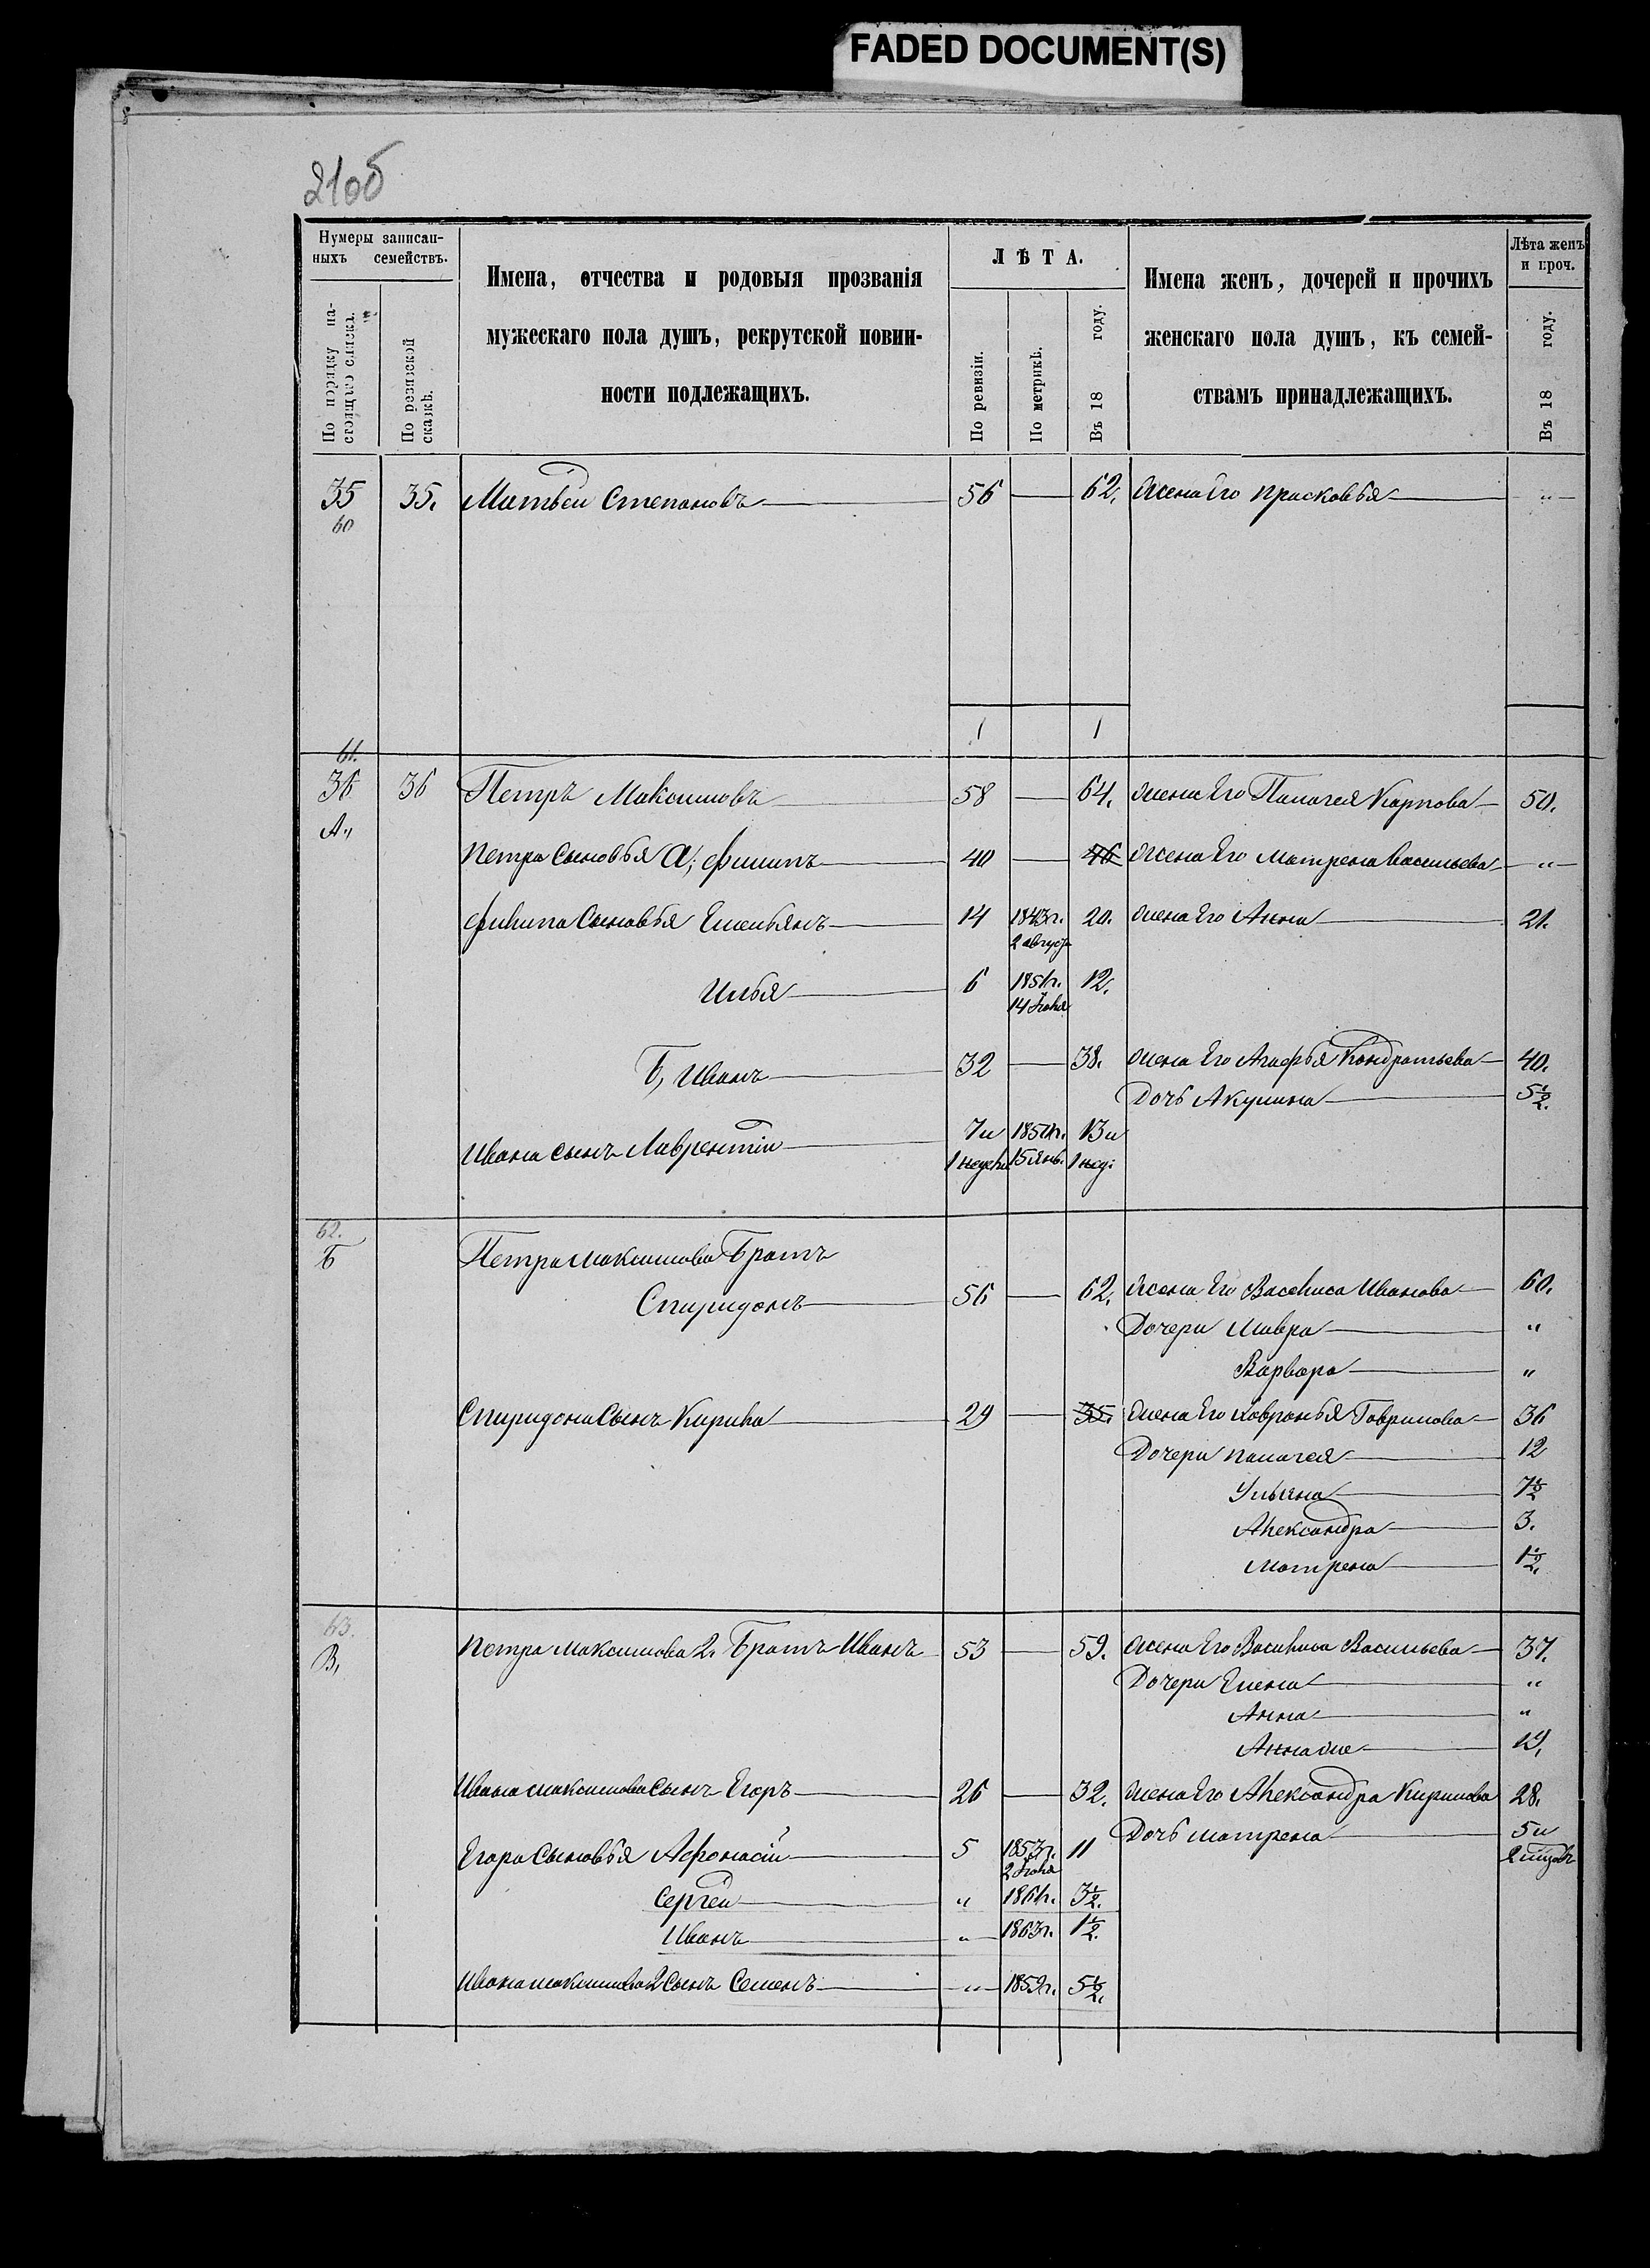 FADED DOCUMENT(S)
21об
Нумеры записан-
ныхъ семействъ.
По порядку на-
стоящаго списка.
По ревизской
сказкѣ.
Имена, отчества и родовыя прозванія
мужескаго пола душъ, рекрутской повин-
ности подлежащихъ.
ЛѢТА.
По ревизіи.
По метрикѣ.
Въ 18 году.
Имена женъ, дочерей и прочихъ
женскаго пола душъ, къ семей-
ствамъ принадлежащихъ.
Лѣта женъ
и проч.
Въ 18 году.
35 35. Матвей Степановъ 56 — 62. Жена Его Прасковья "
60
1 1
61.
36 36 Петръ Максимовъ 58 — 64. Жена Его Палагея Карпова 50.
А"
Петра Сыновья А, Филипъ 40 — 46 Жена Его Матрена Васильева "
Филипа Сыновья Емельянъ 14 1843г. 20. Жена Его Анна 21.
2 август
Илья 6 1851г. 12.
14 Іюля
Б, Иванъ 32 — 38. Жена Его Агафья Кондратьева 40.
Дочь Акулина 5½.
Ивана сынъ Лаврентій 7и 1851г. 13и
1 недели 15 Янв. 1 нед:
62.
Б Петра Максимова Братъ
Спиридонъ 56 — 62. Жена Его Васелиса Иванова 60.
Дочери Мавра "
Варвара "
Спиридона Сынъ Кирила 29 — 35. Жена Его Ховронья Гаврилова 36
Дочери Палагея 12
Ульяна 7½
Александра 3.
Матрена 1½.
63.
В, Петра Максимова 2. Братъ Иванъ 53 — 59. Жена Его Василиса Васильева 37.
Дочери Елена "
Анна "
Анна же 19.
Ивана Максимова Сынъ Егоръ 26 — 32. Жена Его Александра Кирилова 28.
Дочь Матрена 5и
Егора Сыновья Афонасій 5 1853г. 11
2 Іюля
Сергей " 1861г. 3½.
Иванъ " 1863г. 1½.
Ивана Максимова 2 Сынъ Семенъ " 1859г. 5½.